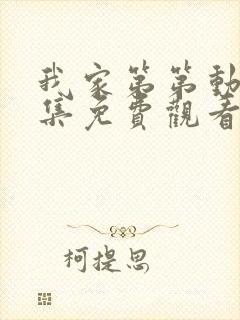 我家第第動
集免費觀看
柯提思